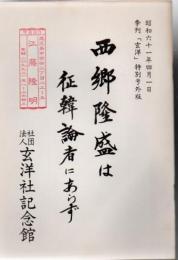 昭和六十一年四月一日
季刊「玄洋」特別号外版
西郷隆盛は
征韓論者にあらず
社団法人 玄洋社記念館
江藤隆明